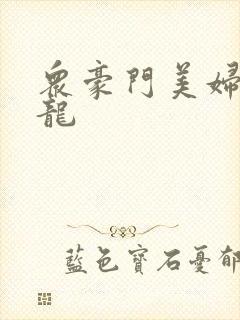 衆豪門美婦
龍
藍色寶石憂郁